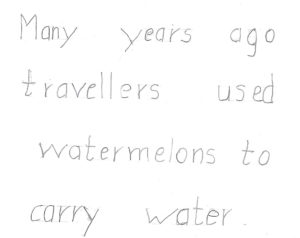 Many years ago
travellers used
watermelons to
carry water.